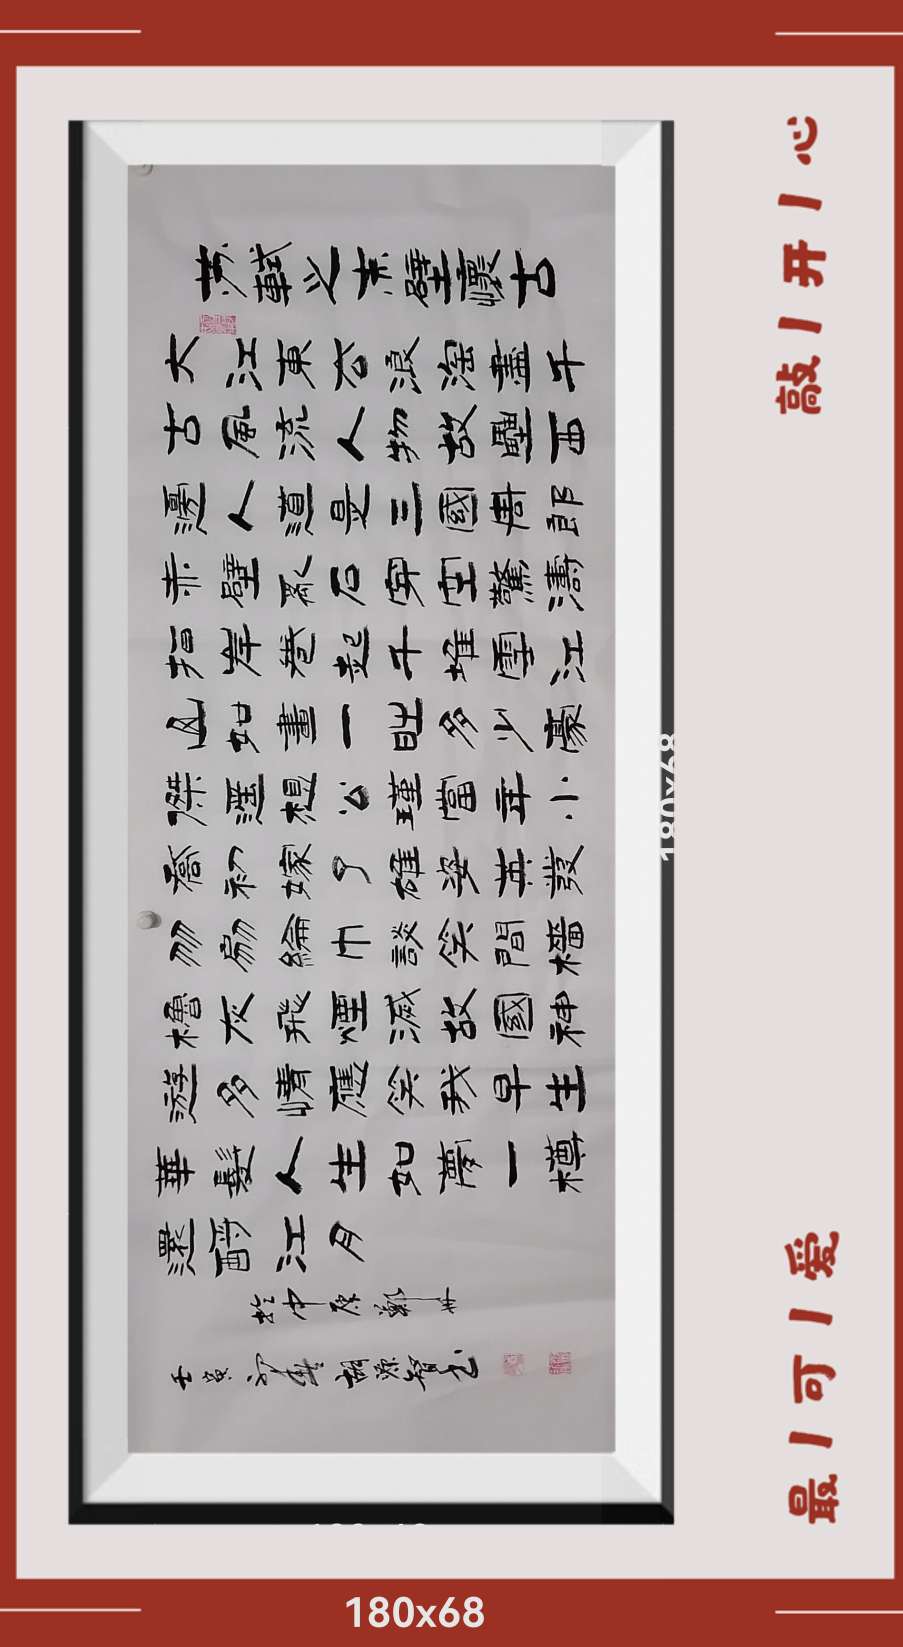 蘇軾之赤壁懷古
大江東去浪淘盡千
古風流人物故壘西
邊人道是三國周郎
赤壁亂石穿空驚濤
拍岸卷起千堆雪江
山如畫一時多少豪
傑遙想公瑾當年小
喬初嫁了雄姿英發
羽扇綸巾談笑間檣
櫓灰飛煙滅故國神
遊多情應笑我早生
華髮人生如夢一樽
還酹江月
於中原鄭州
壬寅 胡
敲|开|心
最|可|爱
180x68
180x68